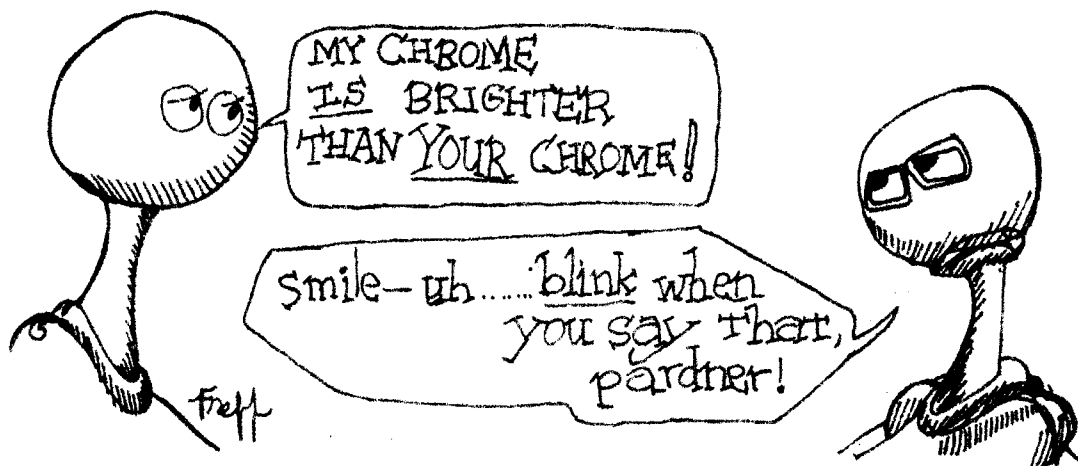 MY CHROME
IS BRIGHTER
THAN YOUR CHROME!
smile–uh......blink when
you say that,
pardner!
Freff